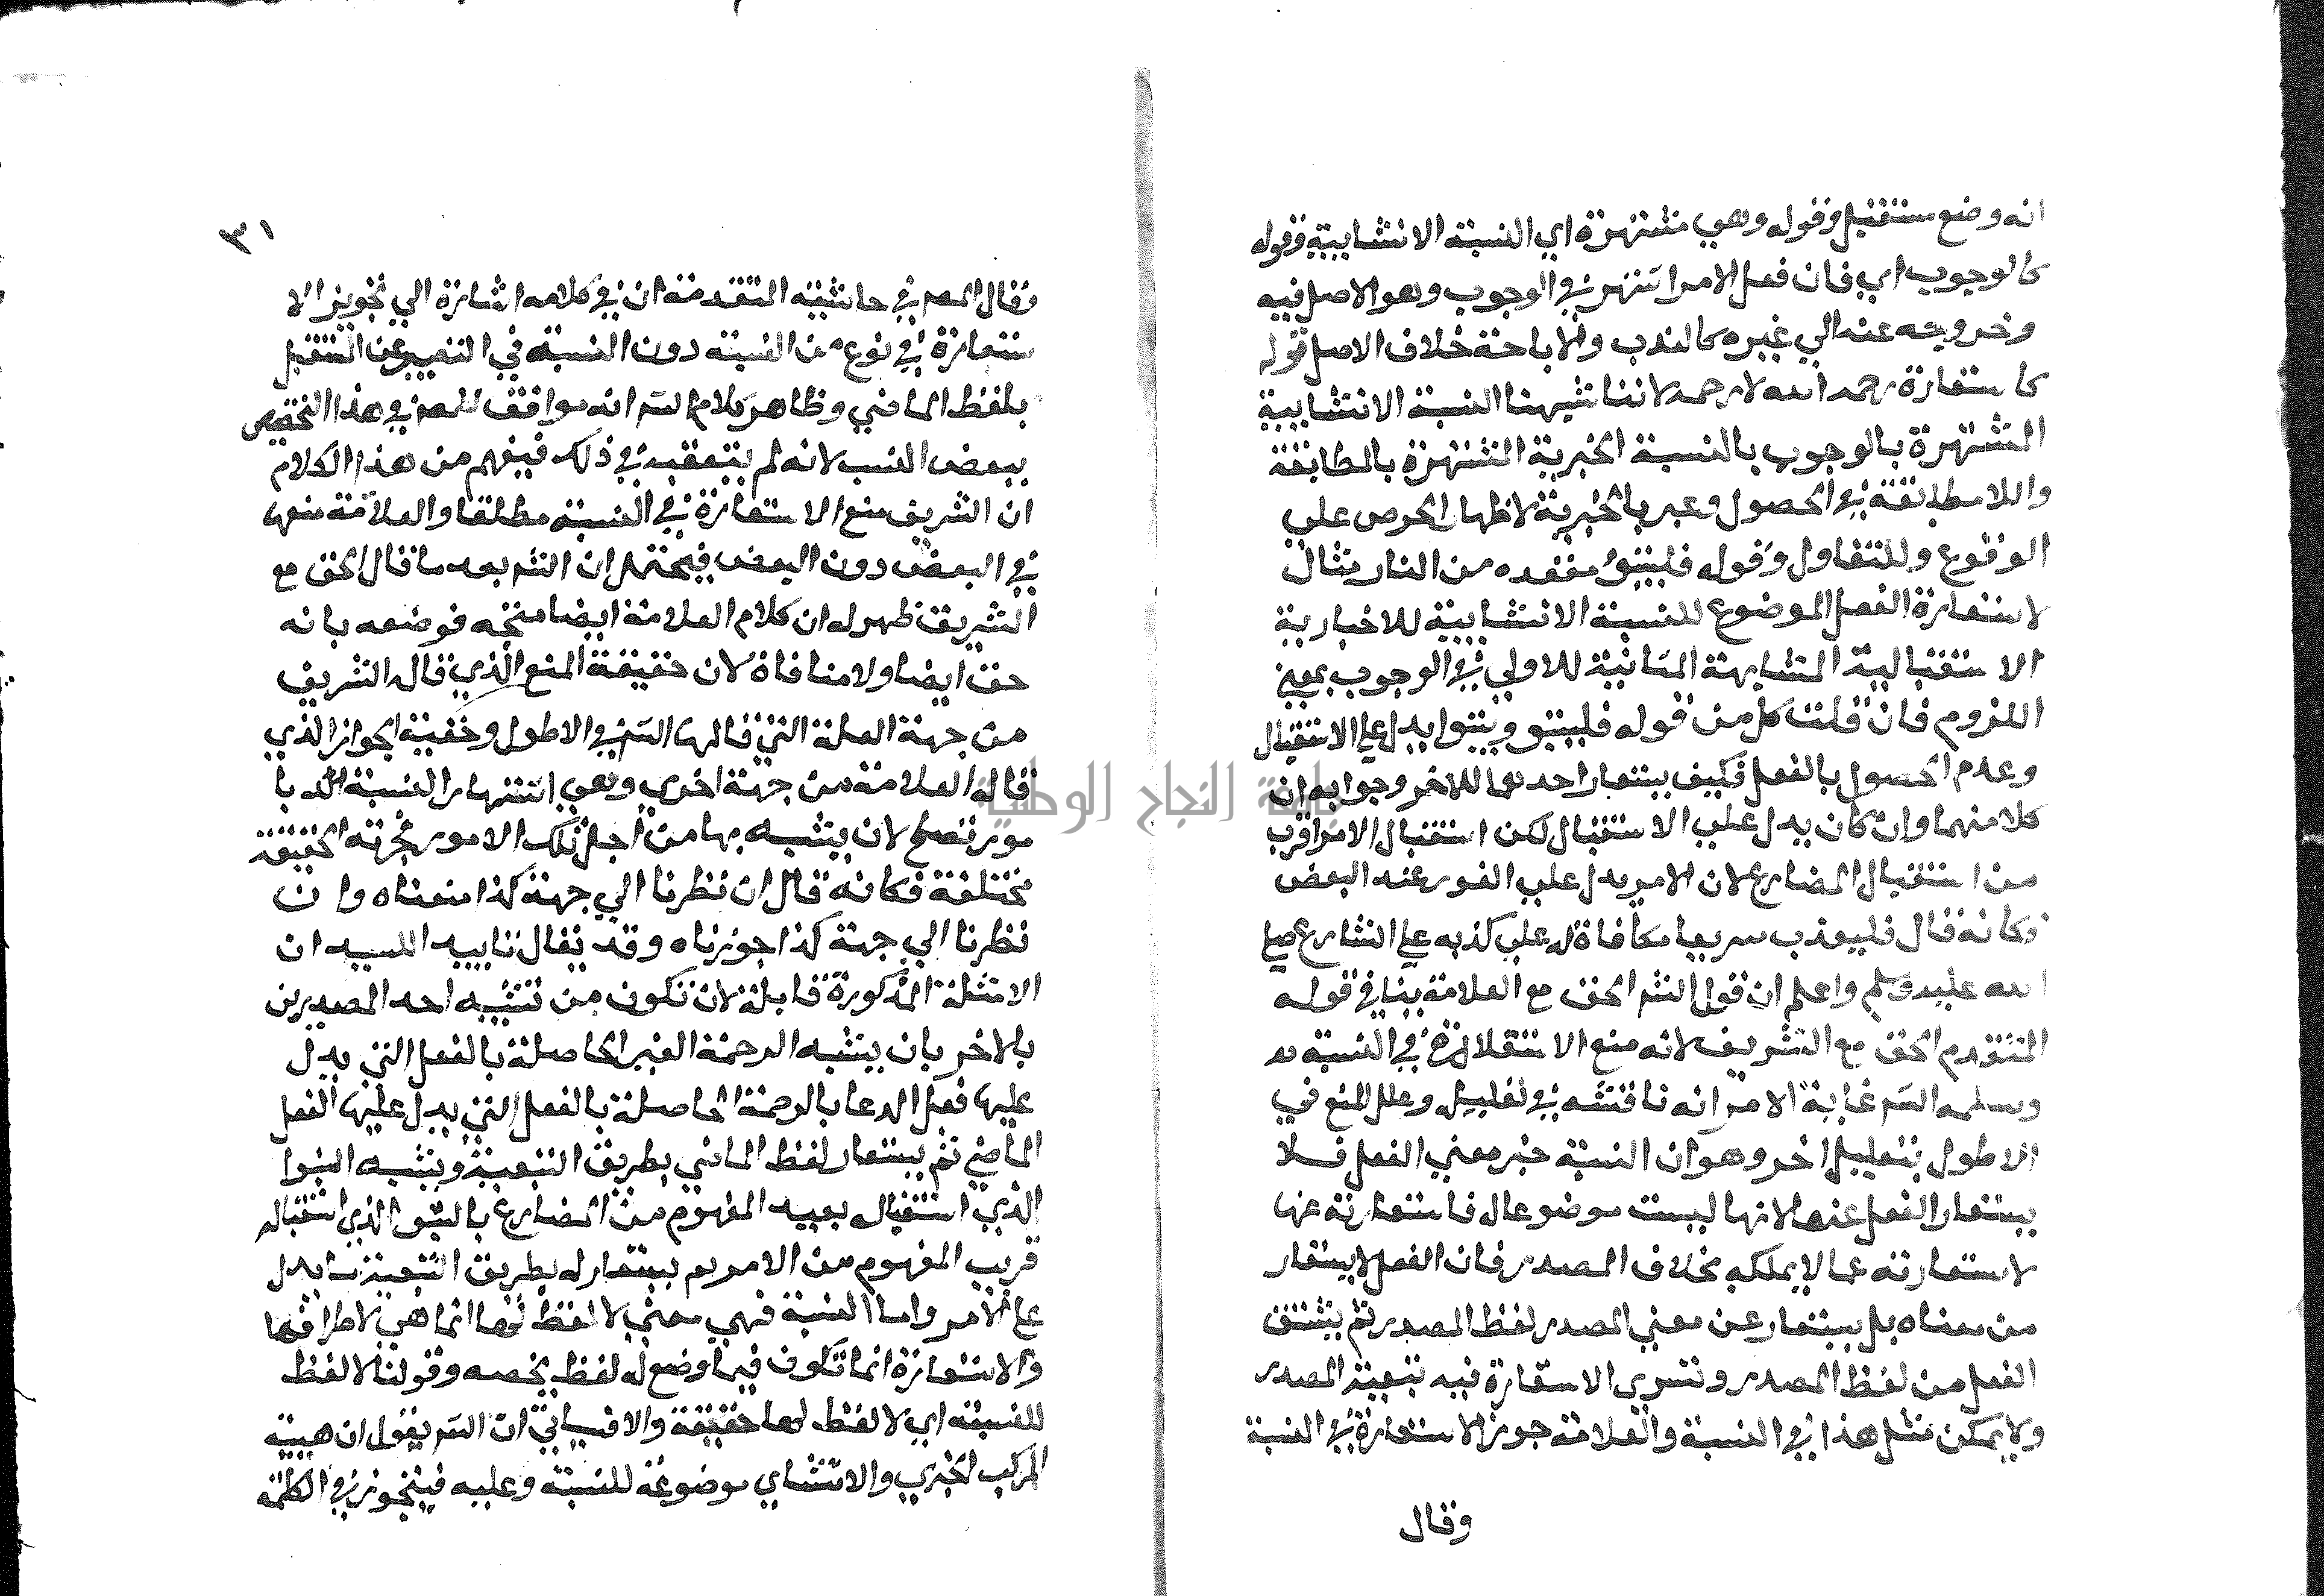 انه وضع مستقبل وقوله وهي مشتهرة اي النسبة الانشاييية وقوله
كالوجوب اي فان فعل الامر اشتهر في الوجوب وهو الاصل فيه
وخروجه عنه الي غيره كالندب والاباحة خلاف الاصل قوله
كاستعارة رحمه الله لارحمه لاننا شبهنا النسبة الانشاييية
المشتهرة بالوجوب بالنسبة الخبرية المشتهرة بالمطابقة
واللامطابقة في الحصول وعبر بالخبرية لاظهار الحرص علي
الوقوع وللتفاول وقوله فليتبؤ مقعده من النار مثال
لاستعارة الفعل الموضوع للنسبة الانشاييية للاخبارية
الاستقبالية المشابهة الثانية للاولي في الوجوب بمعني
اللزوم فان قلت كل من قوله فليتبو ويتبوا يدل علي الاستقبال
وعدم الحصول بالفعل فكيف يستعار احدهما للاخر وجوابه ان
كلا منهما وان كان يدل علي الاستقبال لكن استقبال الامر اقرب
من استقبال المضارع لان الامر يدل علي الفور عند البعض
فكانه قال فليعذب سريعا مكافاة له علي كذبه علي الشارع صلي
الله عليه وسلم واعلم ان قول الشر الحق مع العلامة ينافي قوله
المتقدم الحق مع الشريف لانه منع الاستقلال في النسبة
وسلمه الشر غاية الامر انه ناقشه في تعليل وعلل المنع في
الاطول بتعليل اخر وهو ان النسبة جزء معني الفعل فلا
يستعار الفعل عنها لانها ليست موضوعا له فاستعارته عنها
لاستعارته عما لا يملكه بخلاف المصدر فان الفعل لا يستعار
من معناه بل يستعار عن معني المصدر لفظ المصدر ثم يشتق
الفعل من لفظ المصدر وتسري الاستعارة فيه بتبعية المصدر
ولا يمكن مثل هذا في النسبة والعلامة جوز الاستعارة في النسبة
وقال
٣١
وقال المص في حاشيته المتقدمة ان في كلامه اشارة الي تجويز الا
ستعارة في نوع من النسبة دون النسبة في التعبير عن المستقبل
بلفظ الماضي وظاهر كلام الشر انه موافق للمص في هذا التخصيص
ببعض النسب لانه لم يتعقبه في ذلك فيفهم من هذا الكلام
ان الشريف منع الاستعارة في النسبة مطلقا والعلامة منعها
في البعض دون البعض فيحتمل ان الشر بعد ما قال الحق مع
الشريف ظهر له ان كلام العلامة ايضا متجه فوضعه بانه
حق ايضا ولا منافاة لان حقيقة المنع الذي قاله الشريف
من جهة العلة التي قالها الشر في الاطول وحقية الجواز الذي
قاله العلامة من جهة اخري وهي اشتهار النسبة الخ با
مور تصلح لان يشبه بها من اجل تلك الامور فجرته الحقيقة
مختلفة فكانه قال ان نظرنا الي جهة كذا منعناه وان
نظرنا الي جهة كذا جوزناه وقد يقال تاييد السيد ان
الامثلة المذكورة قابلة لان تكون من تشبيه احد المصدرين
بالاخر بان يشبه الرحمة الغير الحاصلة بالفعل التي يدل
عليها فعل الدعا بالرحمة الحاصلة بالفعل التي يدل عليها الفعل
الماضي ثم يستعار لفظ الماضي بطريق التبعية ويشبه التبوا
الذي استقباله بعيد المفهوم من المضارع بالتبوا الذي استقباله
قريب المفهوم من الامر ثم يستعار له بطريق التبعية ما يدل
علي الامر واما النسبة فهي معني لا لفظ لها انما هي لاطرافها
والاستعارة انما تكون فيما وضع له لفظ يخصه وقولنا لا لفظ
للنسبة اي لا لفظ لها حقيقة والا فسياتي ان الشر يقول ان هيية
المركب الخبري والانشاي موضوعة للنسبة وعليه فيتجوز في الكلمة
جامعة النجاح الوطنية